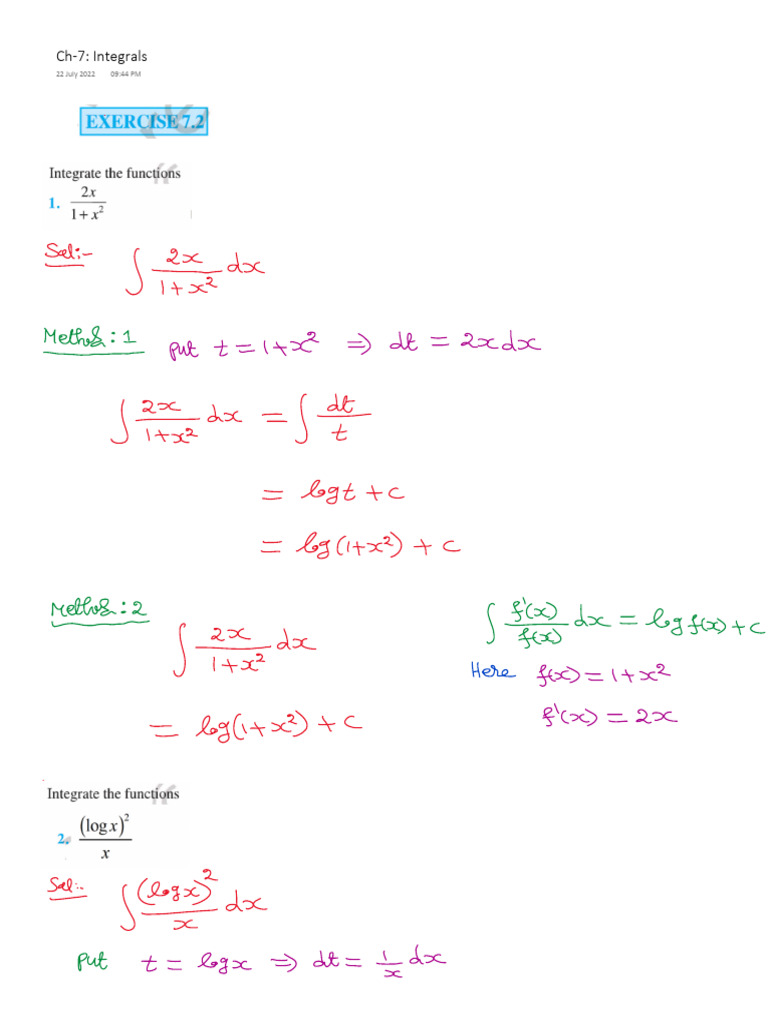 Ch-7: Integrals
22 July 2022 09:44 PM
EXERCISE 7.2
Integrate the functions
1. 2x / (1 + x²)
Sol:- ∫ 2x / (1+x²) dx
Method : 1 put t = 1+x² ⇒ dt = 2x dx
∫ 2x / (1+x²) dx = ∫ dt / t
= log t + c
= log(1+x²) + c
Method : 2
∫ 2x / (1+x²) dx
= log(1+x²) + c
∫ f'(x) / f(x) dx = log f(x) + c
Here f(x) = 1+x²
f'(x) = 2x
Integrate the functions
2. (log x)² / x
Sol:- ∫ (log x)² / x dx
put t = log x ⇒ dt = 1/x dx